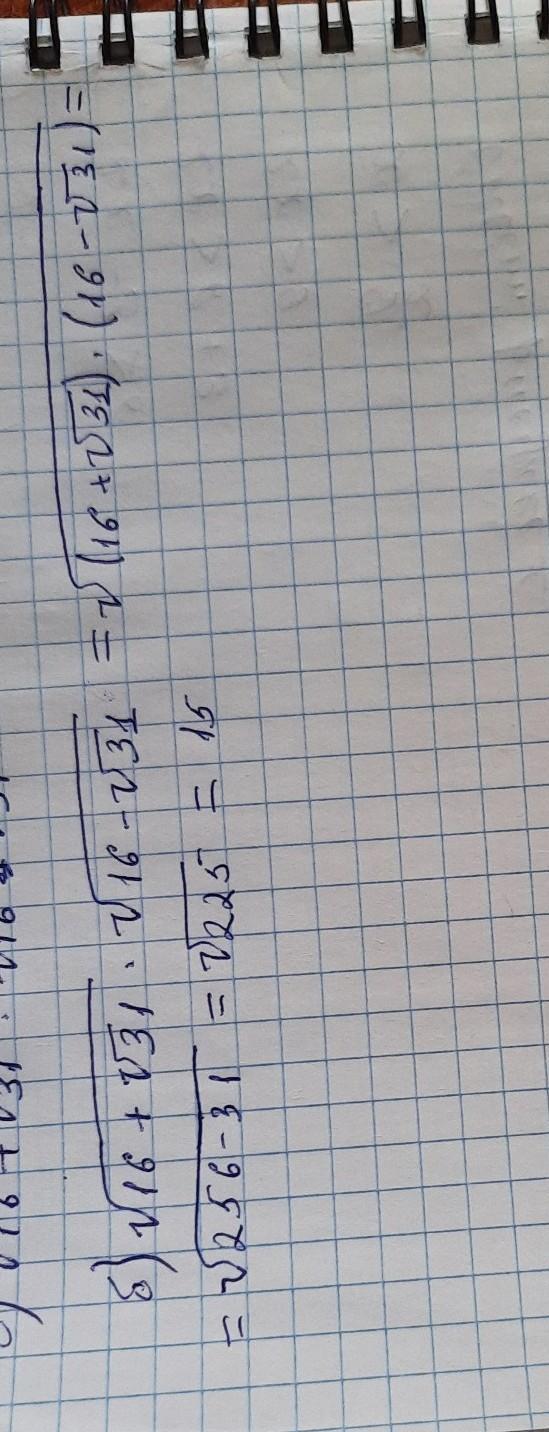 б) √(16 + √31) · √(16 - √31) = √((16 + √31) · (16 - √31)) =
= √(256 - 31) = √225 = 15